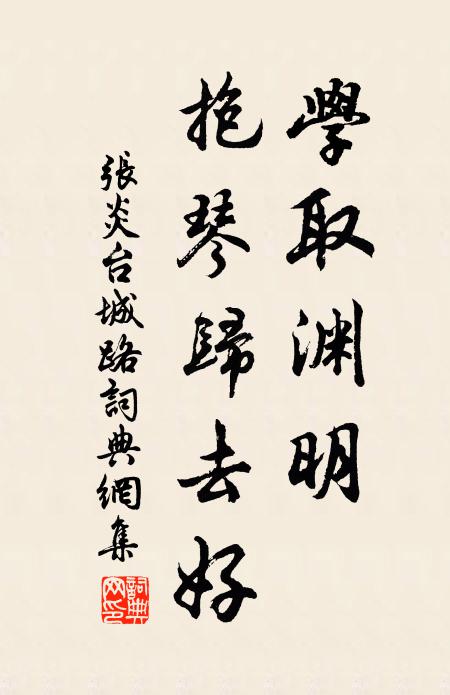 學取渊明
抱琴歸去好
張炎台城路詞典網集
詞典网印